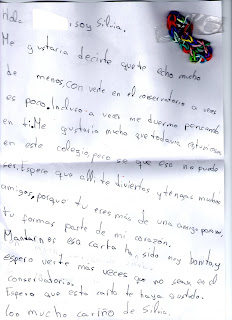 Hola soy Silvia.
Me gustaria decirte que te echo mucho
de menos, con verte en el conservatorio a veces
es poco. Incluso a veces me duermo pensando
en ti. Me gustaria mucho que todavia estuvieras
en este colegio, pero se que eso no puede
ser. Espero que alli te diviertas y tengas muchos
amigos, porque tu eres más de una amiga para mi
tu formas parte de mi corazon.
Mandarnos esa carta ha sido muy bonito y
espero verte mas veces que no sean en el
conservatorio.
Espero que esta carta te haya gustado.
Con mucho cariño de Silvia.